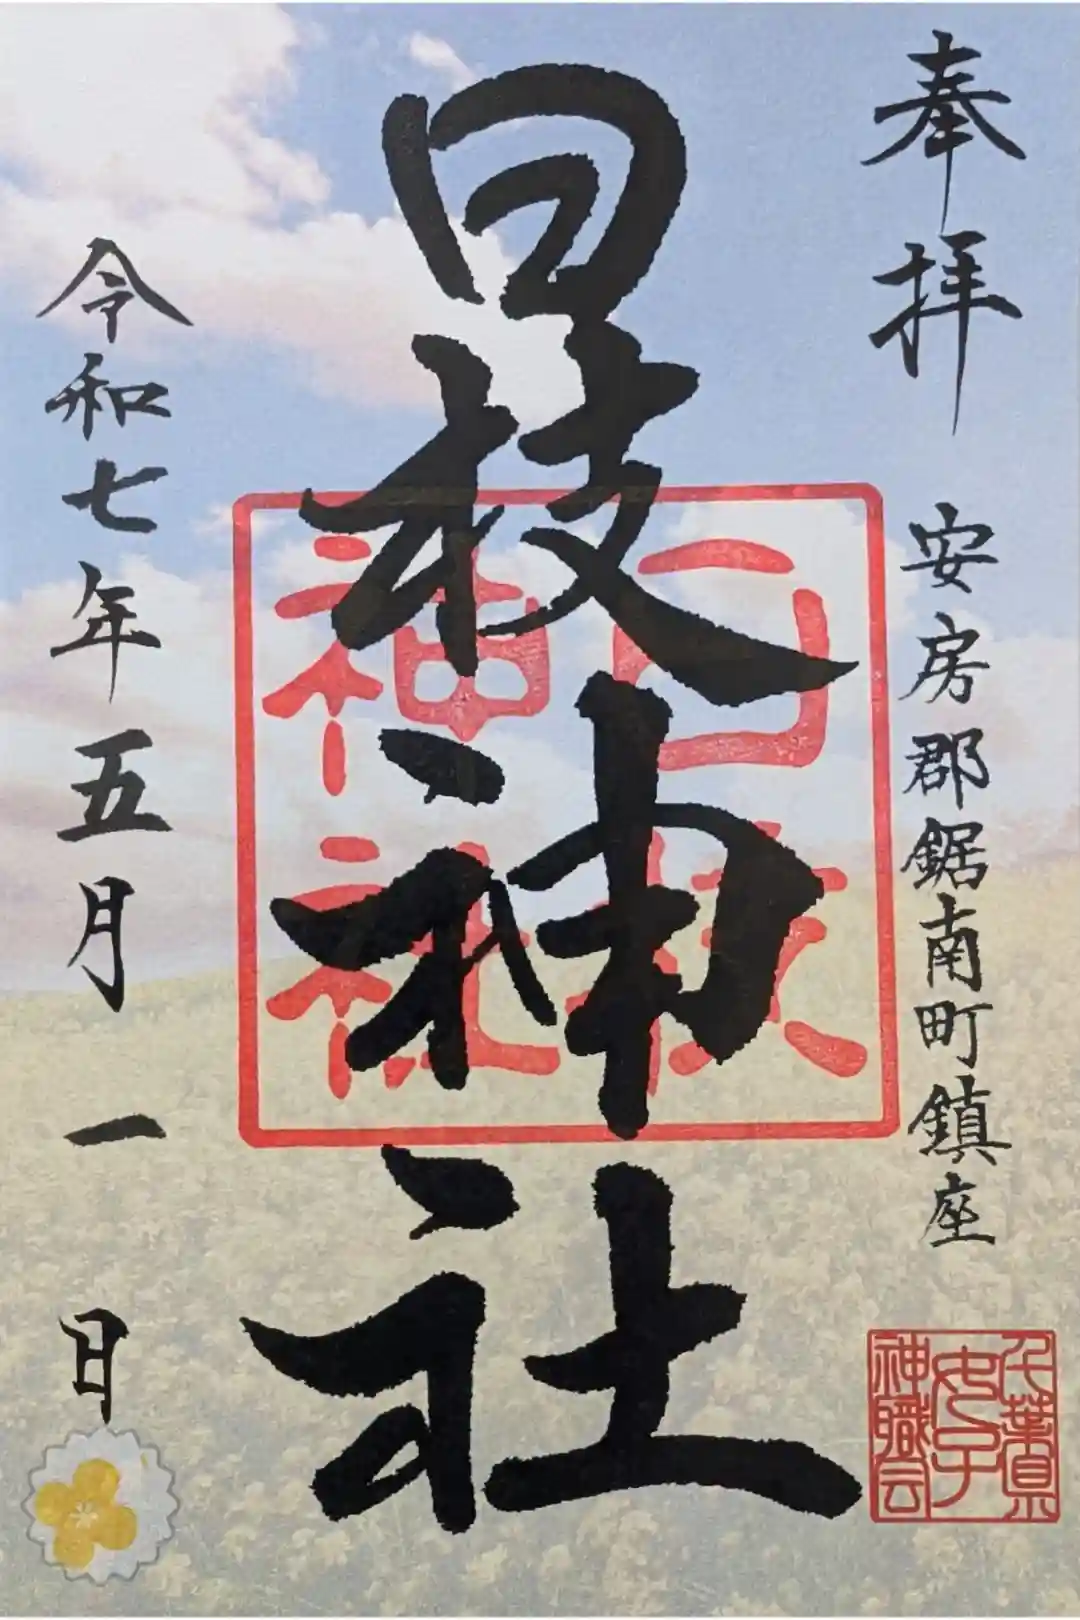 奉拝
安房郡鋸南町鎮座
千葉県
女子
神職会
日枝神社
日枝
神社
令和七年五月一日